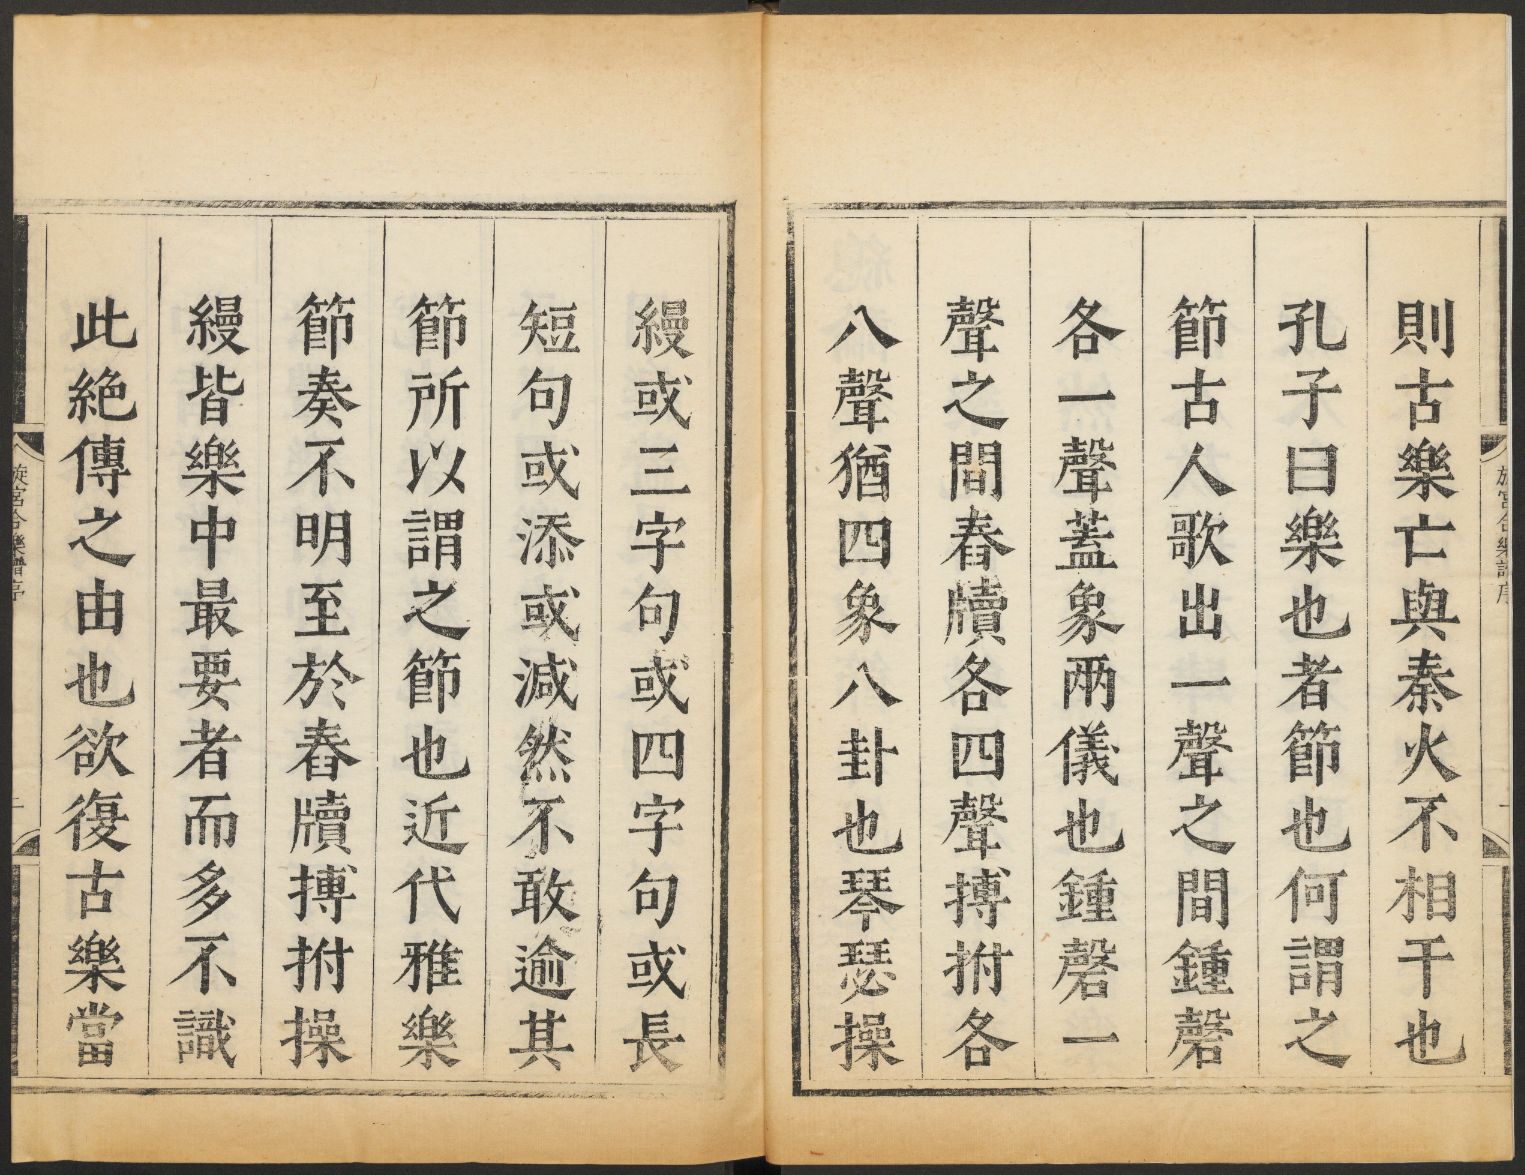 則古樂亡與秦火不相干也
孔子曰樂也者節也何謂之
節古人歌出一聲之間鍾磬
各一聲蓋象兩儀也鍾磬一
聲之間舂牘各四聲搏拊各
八聲猶四象八卦也琴瑟操
縵或三字句或四字句或長
短句或添或減然不敢逾其
節所以謂之節也近代雅樂
節奏不明至於舂牘搏拊操
縵皆樂中最要者而多不識
此絶傳之由也欲復古樂當
旋宮合樂譜序